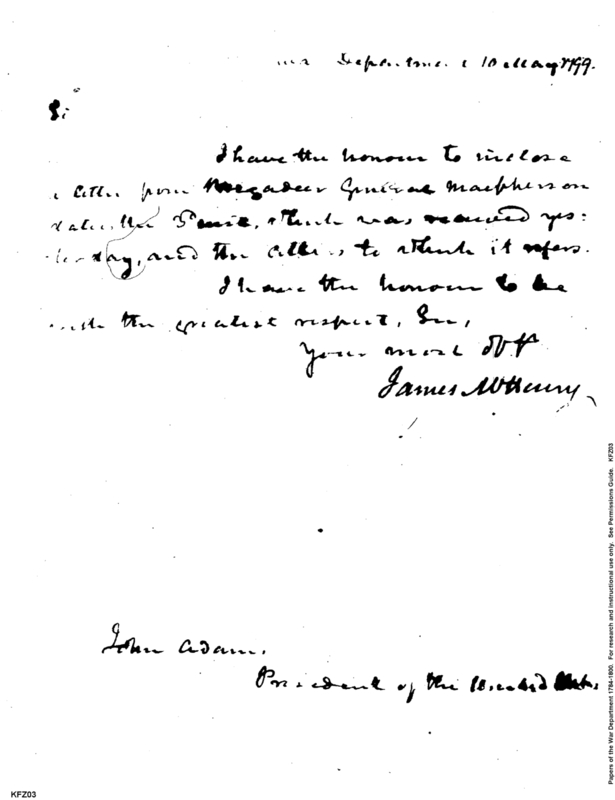 War Department 10 May 1799.
Sir
I have the honour to inclose
a letter from Brigadeer General Macpherson
dated the inst., which was received yes:
terday, and the letters to which it refers.
I have the honour to be
with the greatest respect, Sir,
Your most obt
James McHenry
John Adams.
President of the United States.
KFZ03
Papers of the War Department 1784-1800. For research and instructional use only. See Permissions Guide. KFZ03